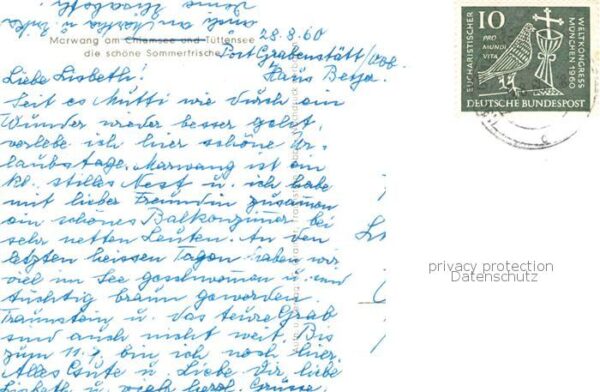 28.8.60
Marwang am Chiemsee und Tüttensee
die schöne Sommerfrische
Post Grabenstätt/Obb.
Haus
Liebe Lisbeth!
Seit es Mutti wie durch ein
Wunder wieder besser geht,
verlebe ich hier schöne Ur-
laubstage. Marwang ist ein
kl. stilles Nest u. ich habe
mit lieber Freundin zusammen
ein schönes Balkonzimmer bei
sehr netten Leuten. An den
letzten heissen Tagen haben wir
viel im See geschwommen u. sind
tüchtig braun geworden.
Traunstein u. das teure Grab
sind auch nicht weit. Bis
zum 11.9. bin ich noch hier.
Alles Gute u. Liebe Dir, liebe
Lisbeth u. viele herzl. Grüsse,
10
EUCHARISTISCHER
WELTKONGRESS
MÜNCHEN 1960
PRO
MUNDI
VITA
DEUTSCHE BUNDESPOST
privacy protection
Datenschutz